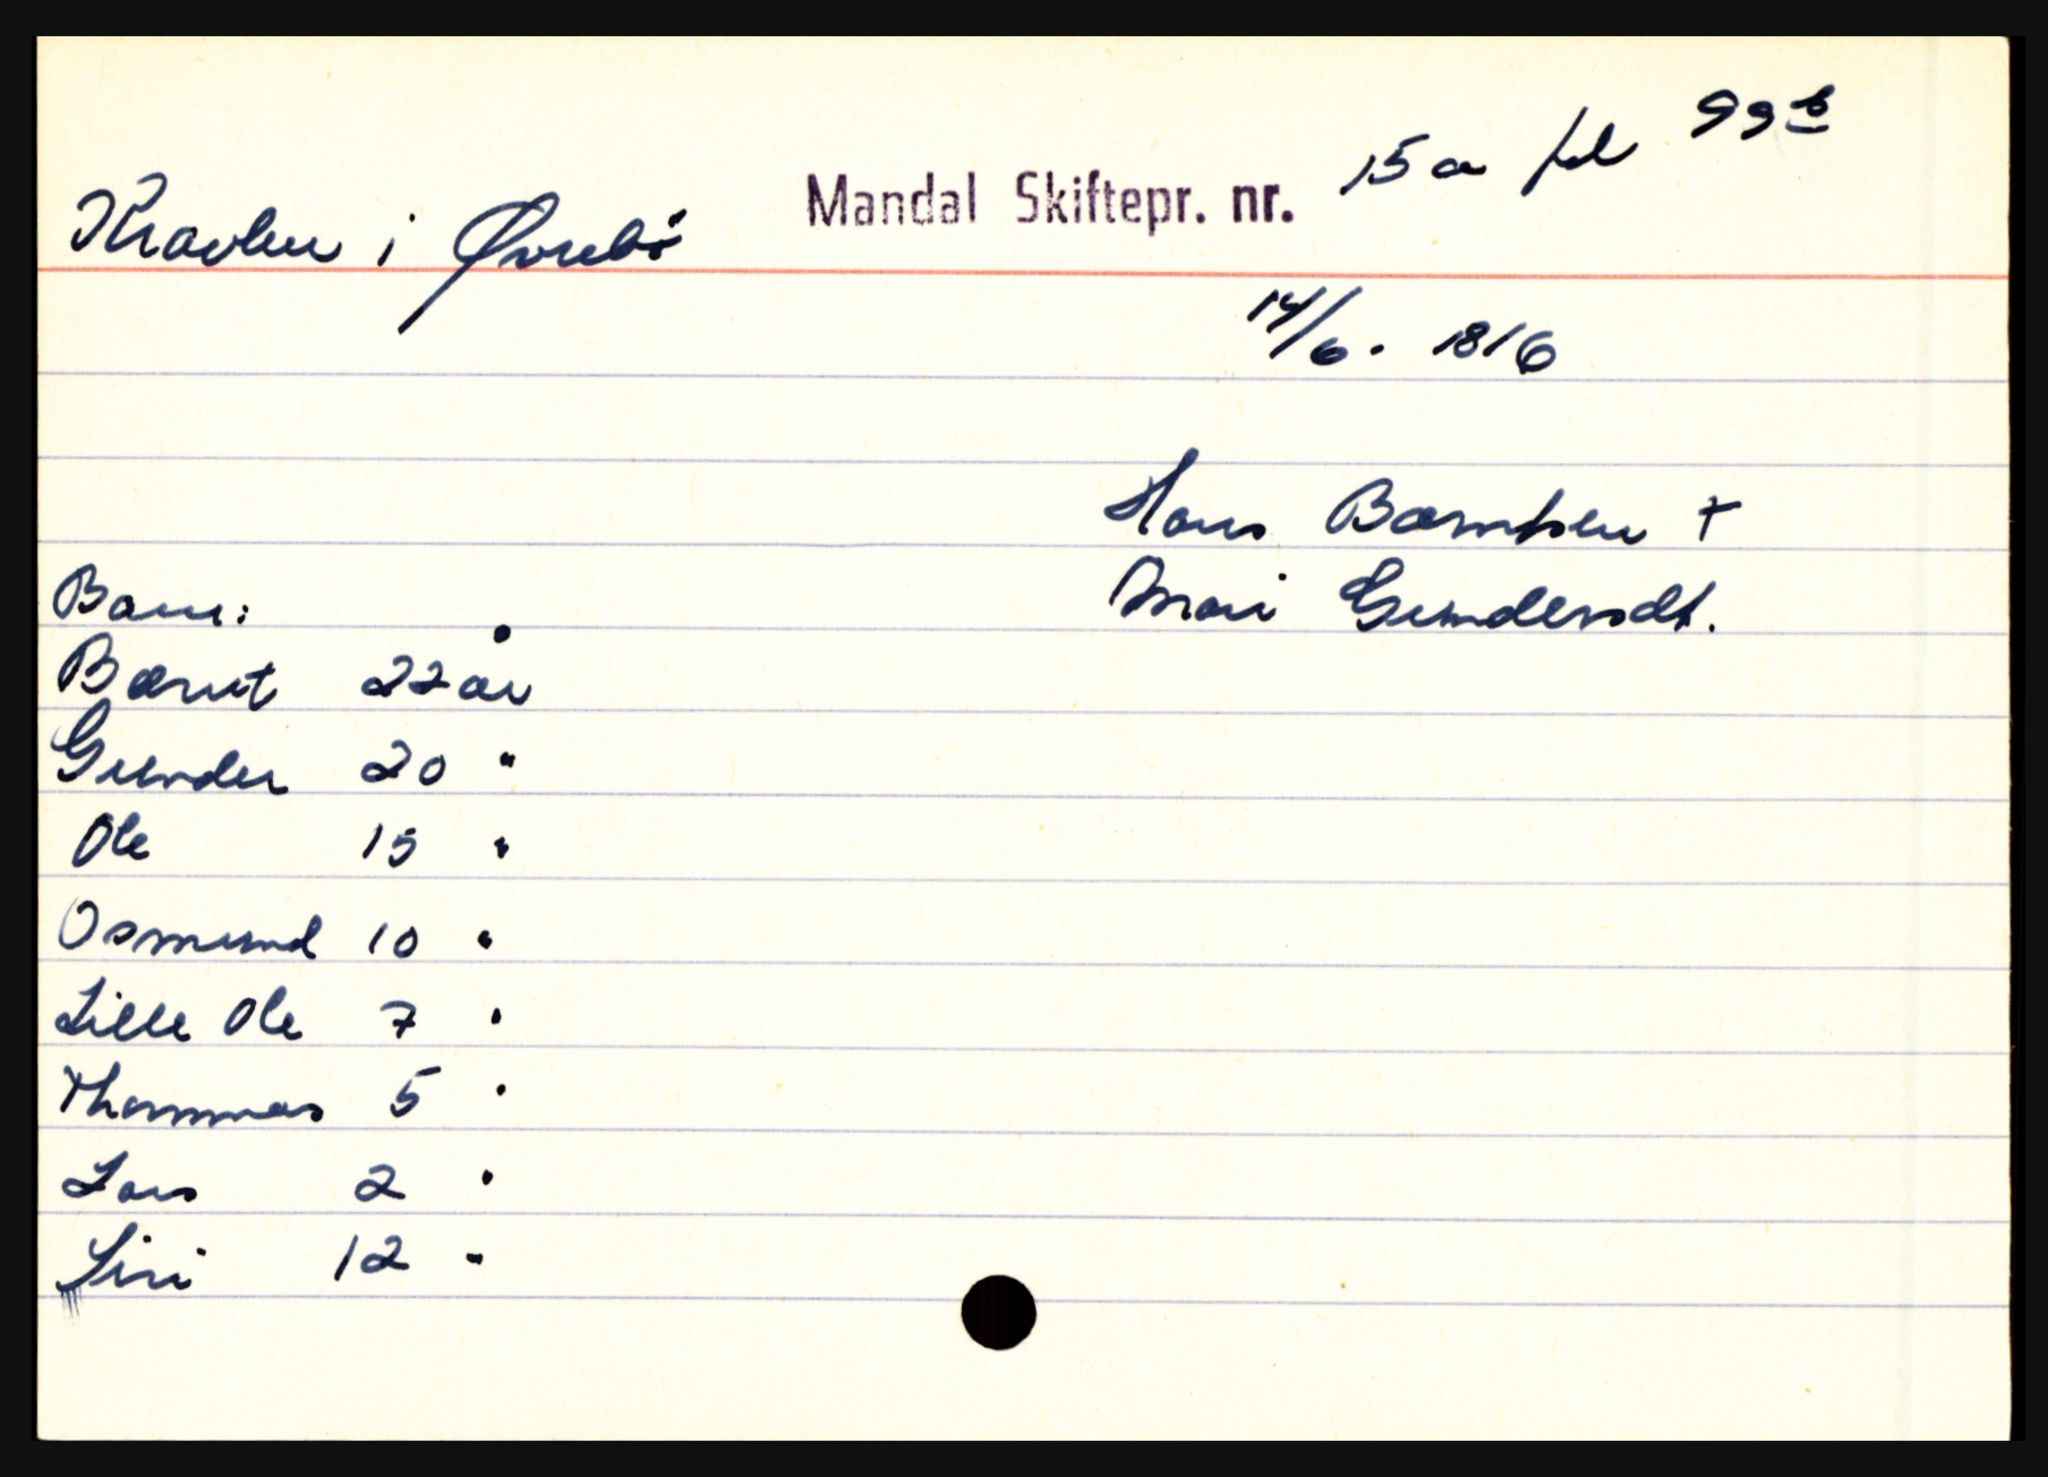 Mandal Skiftepr. nr. 15a fol 99b
Kravlen i Øvrebø
14/6. 1816
Hans Berntsen +
Mari Gundersdt.
Barn:
Bernt 22 år
Gunder 20 "
Ole 15 "
Osmund 10 "
Lille Ole 7 "
Thommas 5 "
Lars 2 "
Siri 12 "